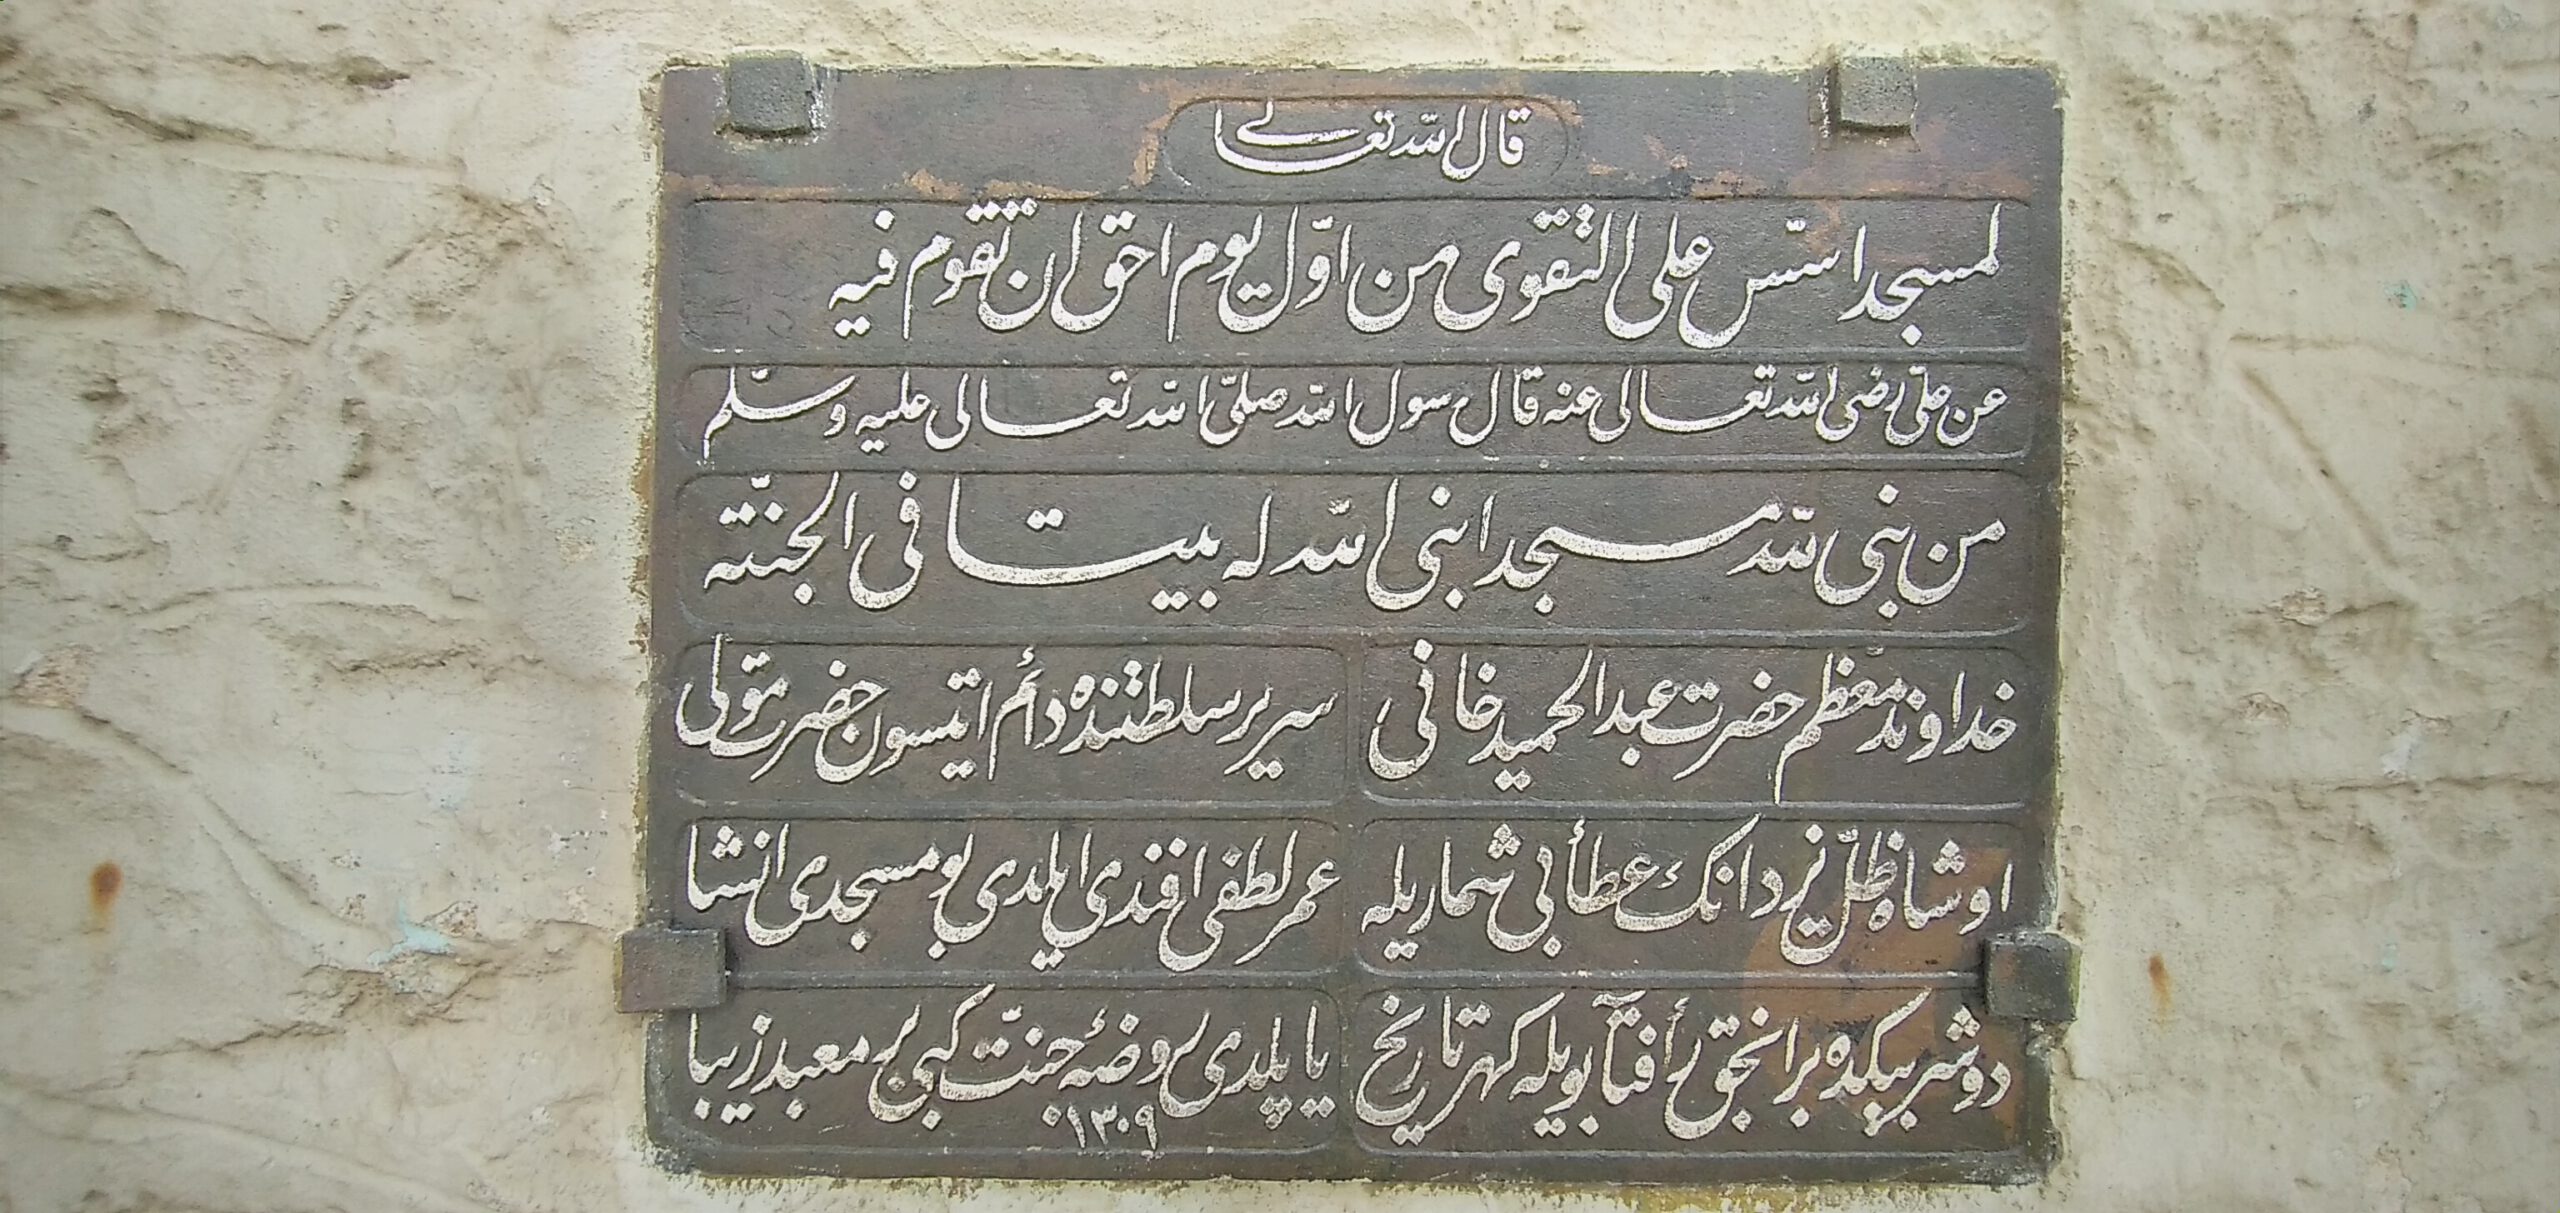 قال الله تعالى
لمسجد اسّس على التقوى من اوّل يوم احق ان تقوم فيه
عن علىّ رضى الله تعالى عنه قال رسول الله صلىّ الله تعالى عليه وسلّم
من بنى لله مسجدا بنى الله له بيتا فى الجنّة
خداوند معظم حضرت عبدالحميد خانى سرير سلطنتنده دائم ايتسون حضرت مولى
او شاه ظلّ يزدانك عطائى بى شماريله عمر لطفى افندى ايلدى بو مسجدى انشا
دوشر بيكده بر انجق كهر تاريخ ياپلدى روضهٔ جنّت كبى بر معبد زيبا
١٣٠٩